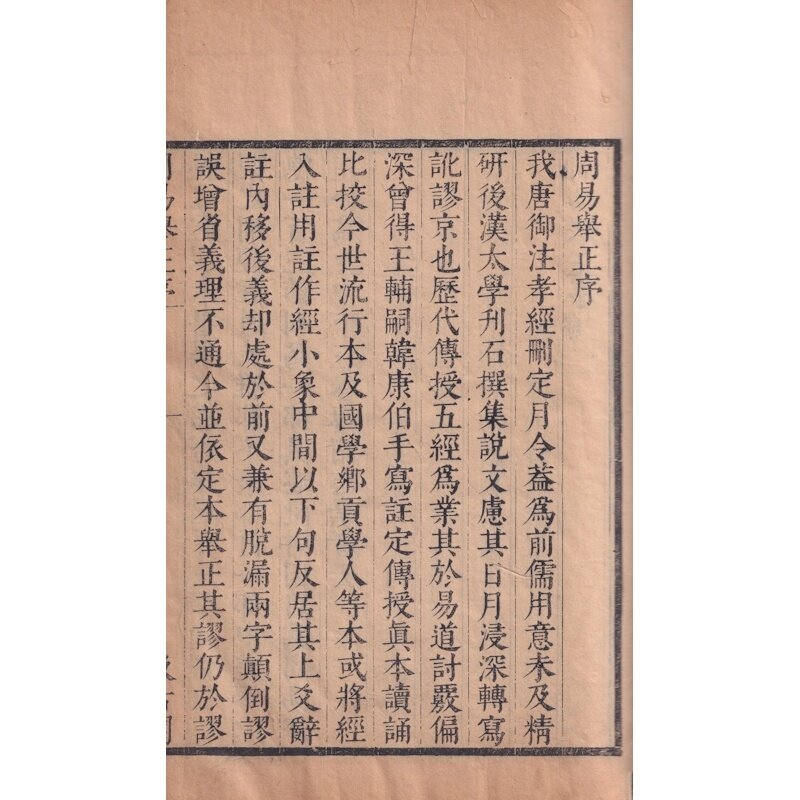 周易舉正序
我唐御注孝經刪定月令葢爲前儒用意未及精
研後漢太學刋石撰集說文慮其日月浸深轉寫
訛謬京也歷代傳授五經爲業其於易道討覈偏
深曾得王輔嗣韓康伯手寫註定傳授眞本讀誦
比挍今世流行本及國學鄉貢學人等本或將經
入註用註作經小象中間以下句反居其上爻辭
註內移後義却處於前又兼有脫漏兩字顛倒謬
誤增省義理不通今並依定本舉正其謬仍於謬
周易舉正序
一